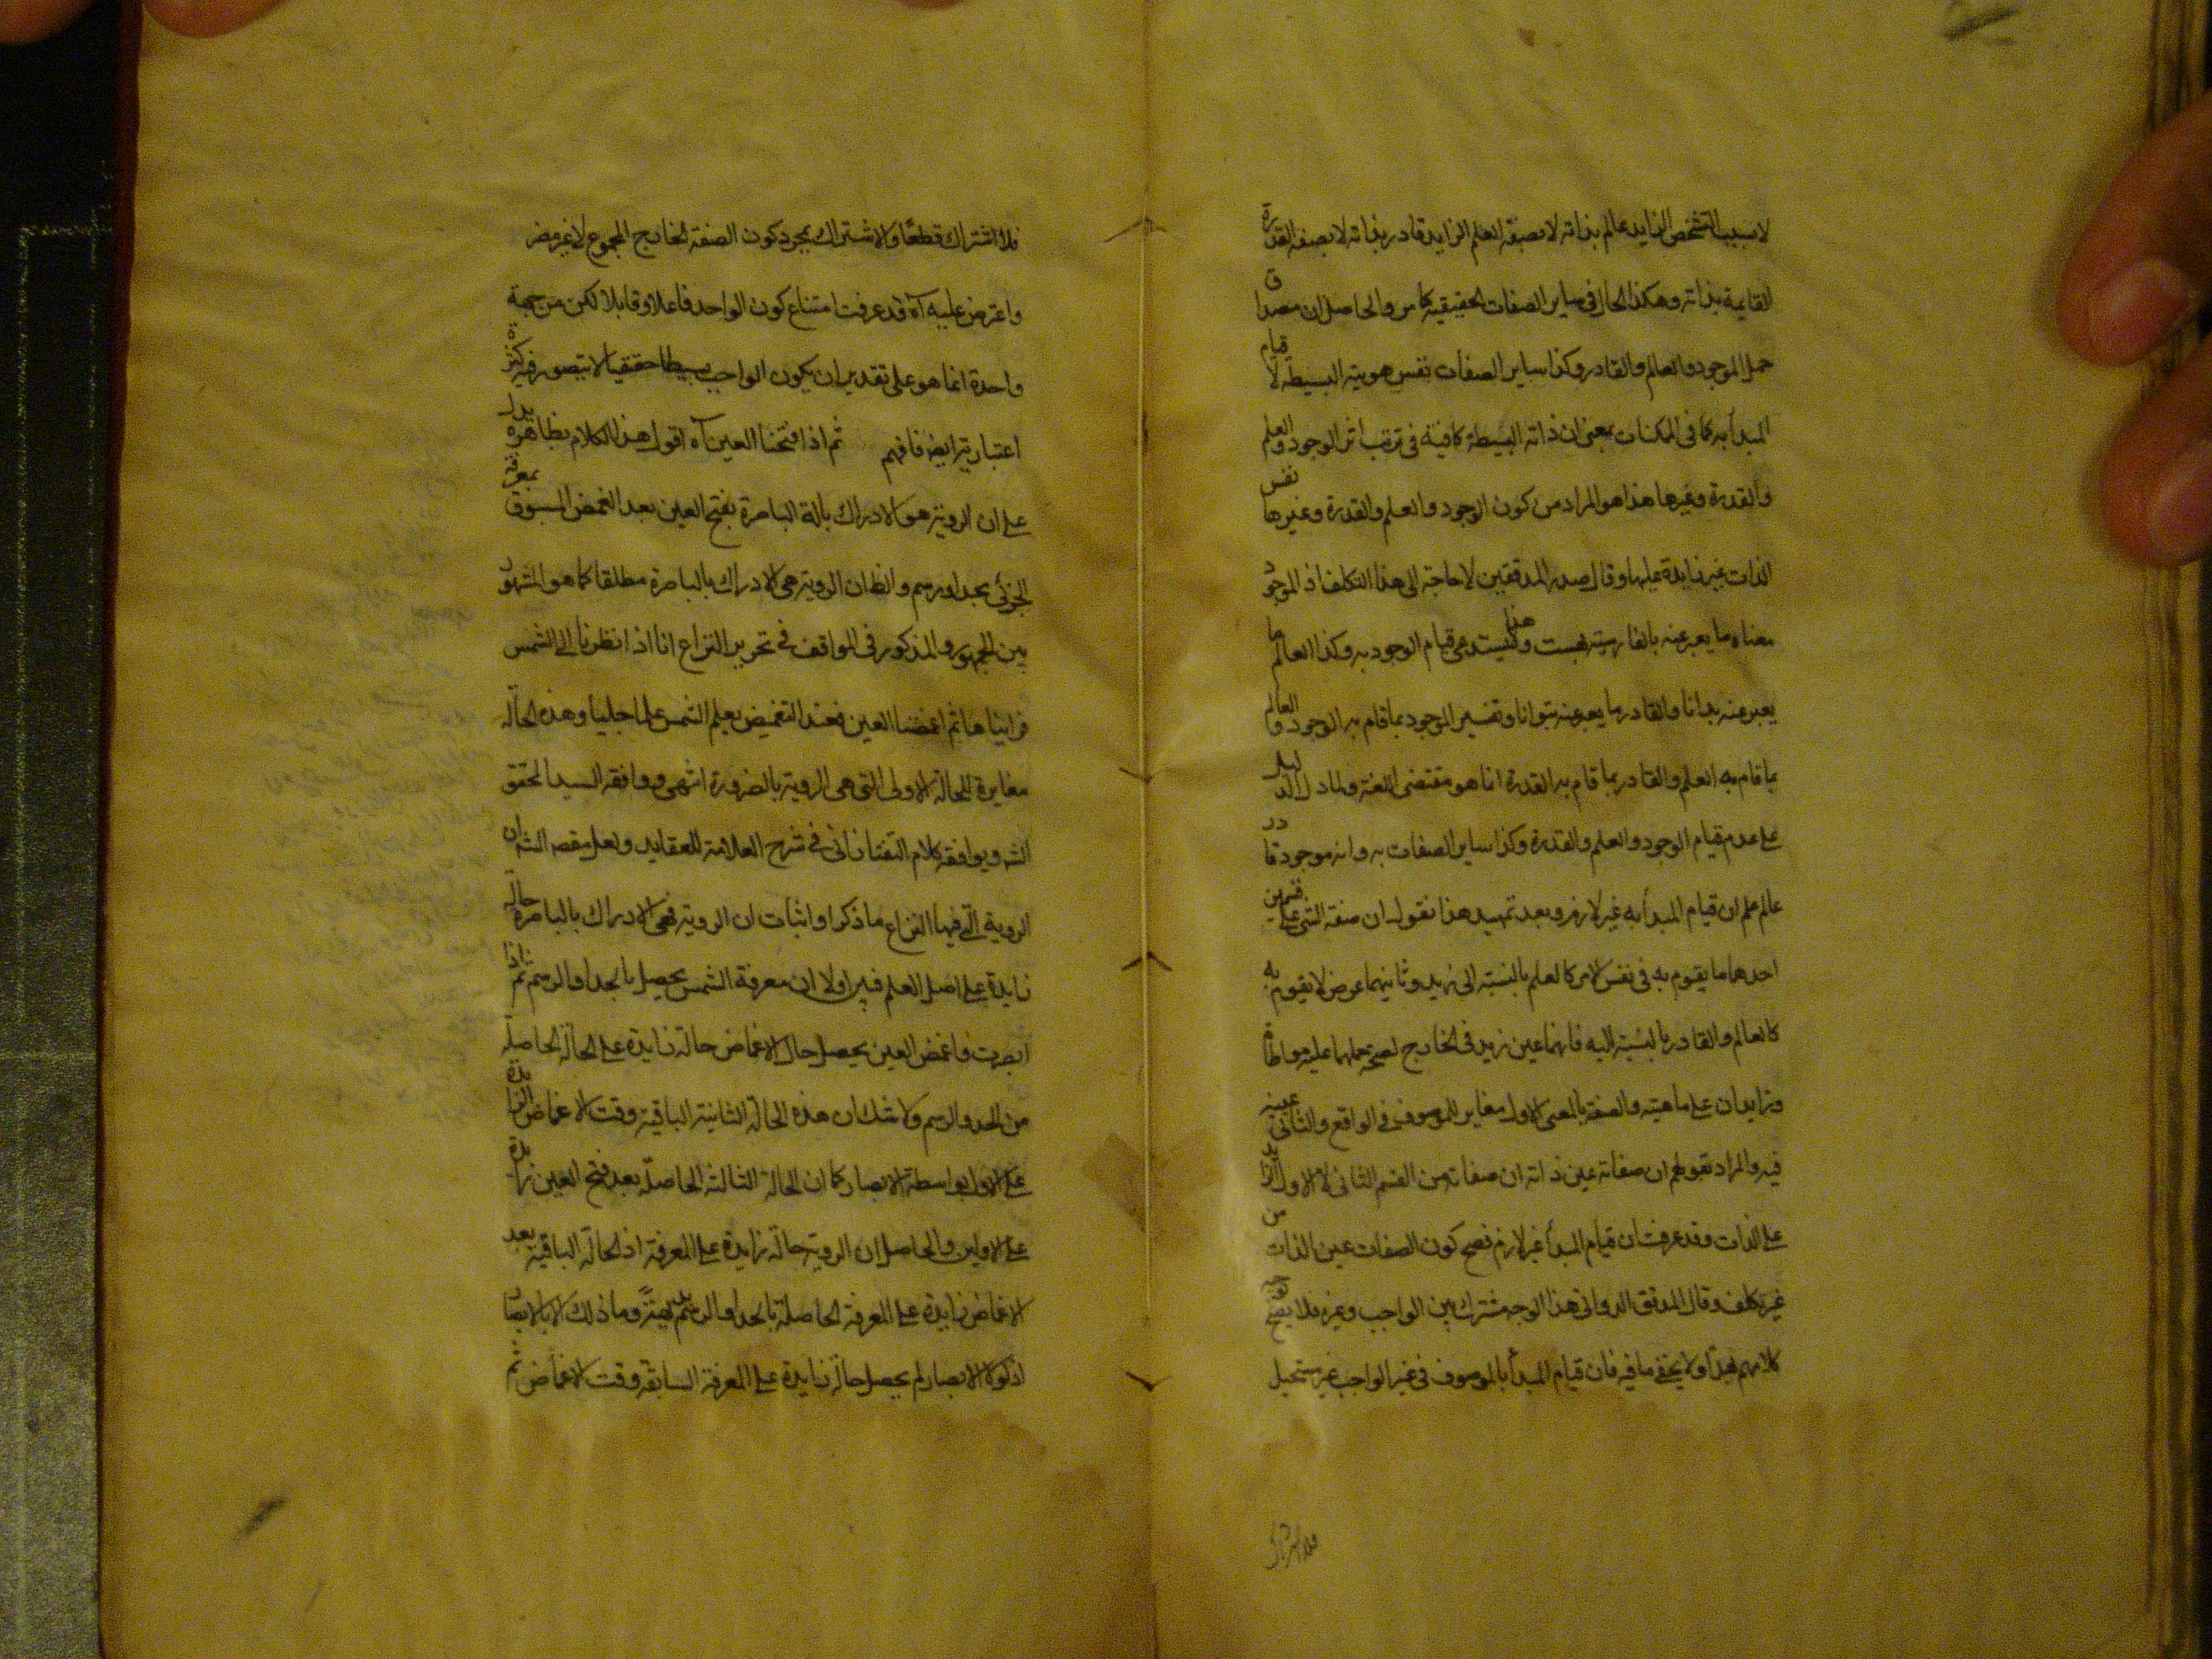 لا بسبب التشخص الزايد عالم بذاته لا بصفة العلم الزايد قادر بذاته لا بصفة القدرة
القايمة بذاته وهكذا الحال في ساير الصفات الحقيقية كما مر والحاصل ان مصداق
حمل الموجود والعالم والقادر وكذا ساير الصفات نفس هويته البسيطة لا قيام
المبدأ به كما في الممكنات بمعنى ان ذاته البسيطة كافية في ترتب اثر الوجود والعلم
والقدرة وغيرها هذا هو المراد من كون الوجود والعلم والقدرة وغيرها نفس
الذات غير زايدة عليها وقال صدر المدققين لا حاجة الى هذا التكلف اذ الموجود
معناه ما يعبر عنه بالفارسية هست وهذا لا يستدعي قيام الوجود به وكذا العالم ما
يعبر عنه بدانا والقادر ما يعبر عنه بتوانا وتفسير الموجود بما قام به الوجود والعالم
بما قام به العلم والقادر بما قام به القدرة انما هو مقتضى اللغة ولما دل الدليل
على عدم قيام الوجود والعلم والقدرة وكذا ساير الصفات به وانه موجود قادر
عالم علم ان قيام المبدأ به غير لازم وبعد تمهيد هذا نقول ان صفة الشئ على قسمين
احدهما ما يقوم به في نفس الامر كالعلم بالنسبة الى زيد وثانيهما عرض لا يقوم به
كالعالم والقادر بالنسبة اليه فانهما عين زيد في الخارج لصحة حملهما عليه مواطاة
وزايدان على ماهيته والصفة بالمعنى الاول مغاير للموصوف في الواقع والثاني عينه
فيه والمراد بقولهم ان صفاته عين ذاته ان صفاته من القسم الثاني لا الاول الزايد
على الذات وقد عرفت ان قيام المبدأ غير لازم فصح كون الصفات عين الذات من
غير تكلف وقال المدقق الدواني هذا الوجه مشترك بين الواجب وغيره فلا يصح
كلامهم هذا ولا يخفى ما فيه فان قيام المبدأ بالموصوف في غير الواجب غير مستحيل
فلا اشتراك
فلا اشتراك قطعا ولا اشتراك بمجرد كون الصفة الخارج المجموع لا غير مضر
واعترض عليه آه قد عرفت امتناع كون الواحد فاعلا وقابلا لكن من جهة
واحدة انما هو على تقدير ان يكون الواجب بسيطا حقيقيا لا يتصور فيه كثرة
اعتبارية ايضا فافهم ثم اذا فتحنا العين آه اقول هذا الكلام بظاهره يدل
على ان الروية هو الادراك بالة الباصرة بفتح العين بعد الغمض المسبوق بمعرفة
الجزئي بحد او رسم والظ ان الروية هي الادراك بالباصرة مطلقا كما هو المشهور
بين الجمهور والمذكور في المواقف في تحرير النزاع انا اذا نظرنا الى الشمس
فرايناها ثم اغمضنا العين فعند التغميض يعلم الشمس علما جليا وهذه الحالة
مغايرة للحالة الاولى التي هي الروية بالضرورة انتهى ووافقه السيد المحقق
الشه ويوافقه كلام التفتازاني في شرح العلامة للعقايد ولعل مقصد الشه ان
الروية التي فيها النزاع ما ذكر او اثبات ان الروية هي الادراك بالباصرة حالة
زايدة على اصل العلم فبين اولا ان معرفة الشمس يحصل بالحد او الرسم ثم اذا
ابصرت واغمض العين يحصل حال الاغماض حالة زايدة على الحالة الحاصلة
من الحد والرسم ولا شك ان هذه الحالة الثانية الباقية وقت الاغماض الزايدة
على الاول بواسطة الابصار كما ان الحالة الثالثة الحاصلة بعد فتح العين زايدة
على الاولين والحاصل ان الروية حالة زايدة على المعرفة اذ الحالة الباقية بعد
الاغماض زايدة على المعرفة الحاصلة بالحد والرسم وما ذلك الا بالابصار
اذ لو لا الابصار لم يحصل حالة زايدة على المعرفة السابقة وقت الاغماض ثم